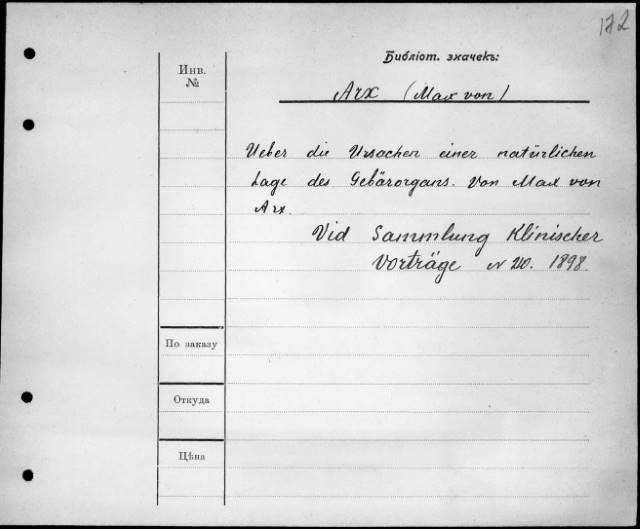 172
Библіот. значекъ:
Инв.
№
Arx (Max von)
Ueber die Ursachen einer natürlichen
Lage des Gebärorgans. Von Max von
Arx.
Vid Sammlung Klinischer
Vorträge N 210. 1898.
По заказу
Откуда
Цѣна